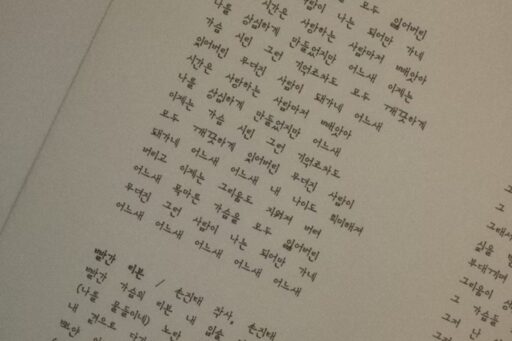 모두 잃어버린
사람이 나는 되어만 가네
시간은 사랑하는 사람마저 빼앗아
나를 상심하게 만들었지만 어느새 이제는
가슴 시린 그런 기억조차도 모두 깨끗하게
잊어버린 무뎌진 사람이 돼가네 어느새
시간은 사랑하는 사람마저 빼앗아
나를 상심하게 만들었지만 어느새
이제는 가슴 시린 그런 기억조차도
모두 깨끗하게 잊어버린 무뎌진 사람이
돼가네 어느새 어느새 내 나이도 희미해져
버리고 이제는 그리움도 지워져 버려
어느새 목마른 가슴을 모두 잃어버린
무뎌진 그런 사람이 나는 되어만 가네
어느새 어느새 어느새 어느새
빨간 리본 / 손진태 작사, 손진태
빨간 가슴의 리본 내
(나를 물들이네) 노란 입술
내 곁으로
뽀얀
그
그
그대
삶을
무대게
그리움이
그 가슴을
그저 난